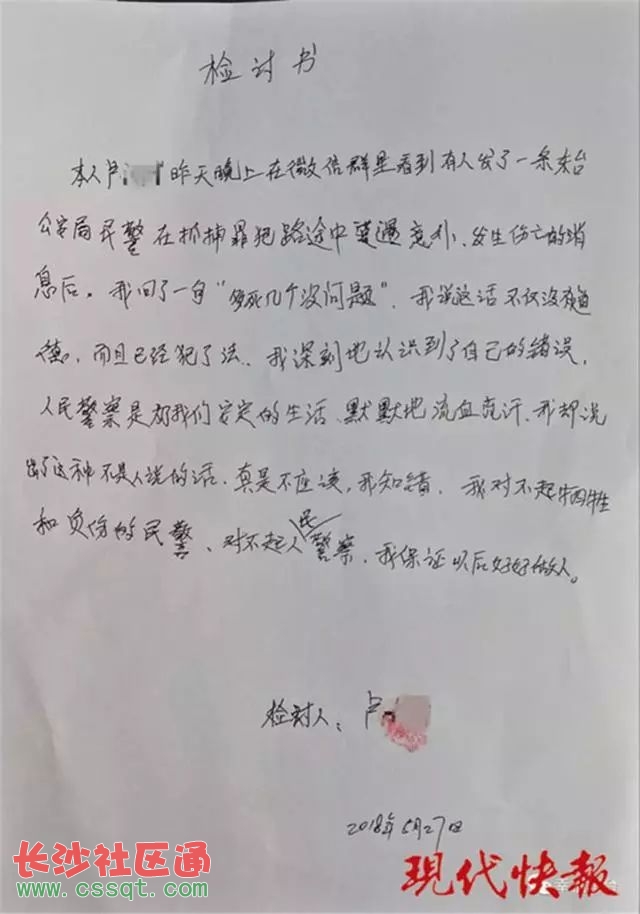 检讨书
本人卢 昨天晚上在微信群里看到有人发了一条东台
公安局民警在抓捕罪犯路途中遭遇意外、发生伤亡的消
息后。我回了一句“多死几个没问题”。我说这话不仅没有道
德,而且已经犯了法。我深刻地认识到了自己的错误,
人民警察是为我们安定的生活、默默地流血流汗、我却说
出了这种不是人说的话,真是不应该,我知错,我对不起牺牲
和负伤的民警、对不起人民警察,我保证以后好好做人。
检讨人:卢
2018年5月27日
长沙社区通
www.cssqt.com
现代快报